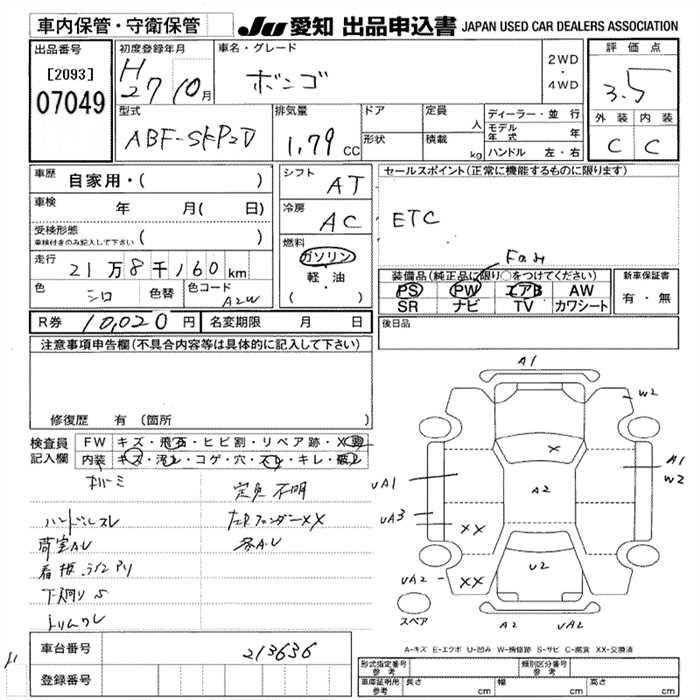 車内保管・守衛保管
JU 愛知 出品申込書 JAPAN USED CAR DEALERS ASSOCIATION
出品番号
[2093]
07049
初度登録年月
H27 10月
車名・グレード
ボンゴ
2WD
・
4WD
評価点
3.5
外装 内装
C C
型式
ABF-SKP2T
排気量
1.79 CC
ドア
形状
定員 人
積載 kg
ディーラー・並行
モデル年式 年
ハンドル 左・右
車歴 自家用・( )
車検 年 月( 日)
受検形態
車検付きのみ記入して下さい ( )
走行 21万8千160km
色 シロ 色替 色コード A2W
シフト AT
冷房 AC
燃料
ガソリン
・
軽・油
( )
セールスポイント(正常に機能するものに限ります)
ETC
装備品(純正品に限り○をつけてください)
PS PW エアB AW
SR ナビ TV カワシート
新車保証書
有・無
後日品
R券 10,020円 名変期限 月 日
注意事項申告欄(不具合内容等は具体的に記入して下さい)
修復歴 有 (箇所 )
検査員記入欄
FW キズ・飛石・ヒビ割・リペア跡・X
内装 キズ・汚レ・コゲ・穴・スレ・キレ・破レ
定員不明
ハンドルスレ
左RフェンダーXX
荷室A.U
各A.U
看板
下廻りS
A1
W2
X
A2
UA1
UA3
XX
A1
W2
UA2
XX
U2
A2
UA2
スペア
A-キズ E-エクボ U-凹み W-補修跡 S-サビ C-腐食 XX-交換済
車台番号 213636
登録番号
型式指定番号 参考
類別区分番号 参考
車庫証明用 参考 長さ cm 幅 cm 高さ cm